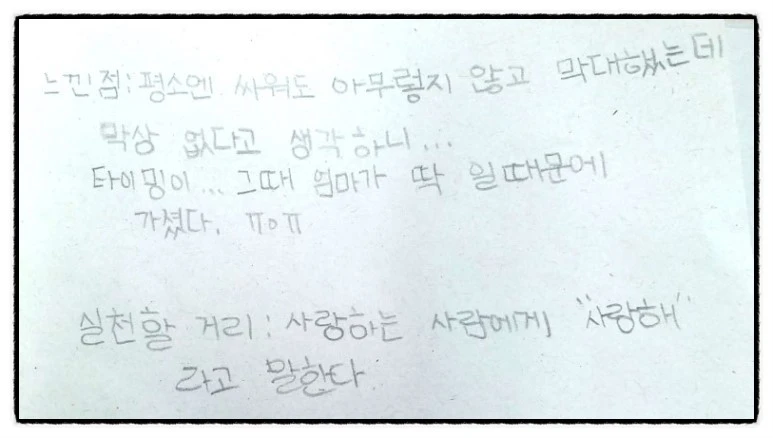 느낀점: 평소엔 싸워도 아무렇지 않고 막대했는데
막상 없다고 생각하니...
타이밍이... 그때 엄마가 딱 일때문에
가셨다. ㅠㅇㅠ
실천할 거리: 사랑하는 사람에게 "사랑해"
라고 말한다